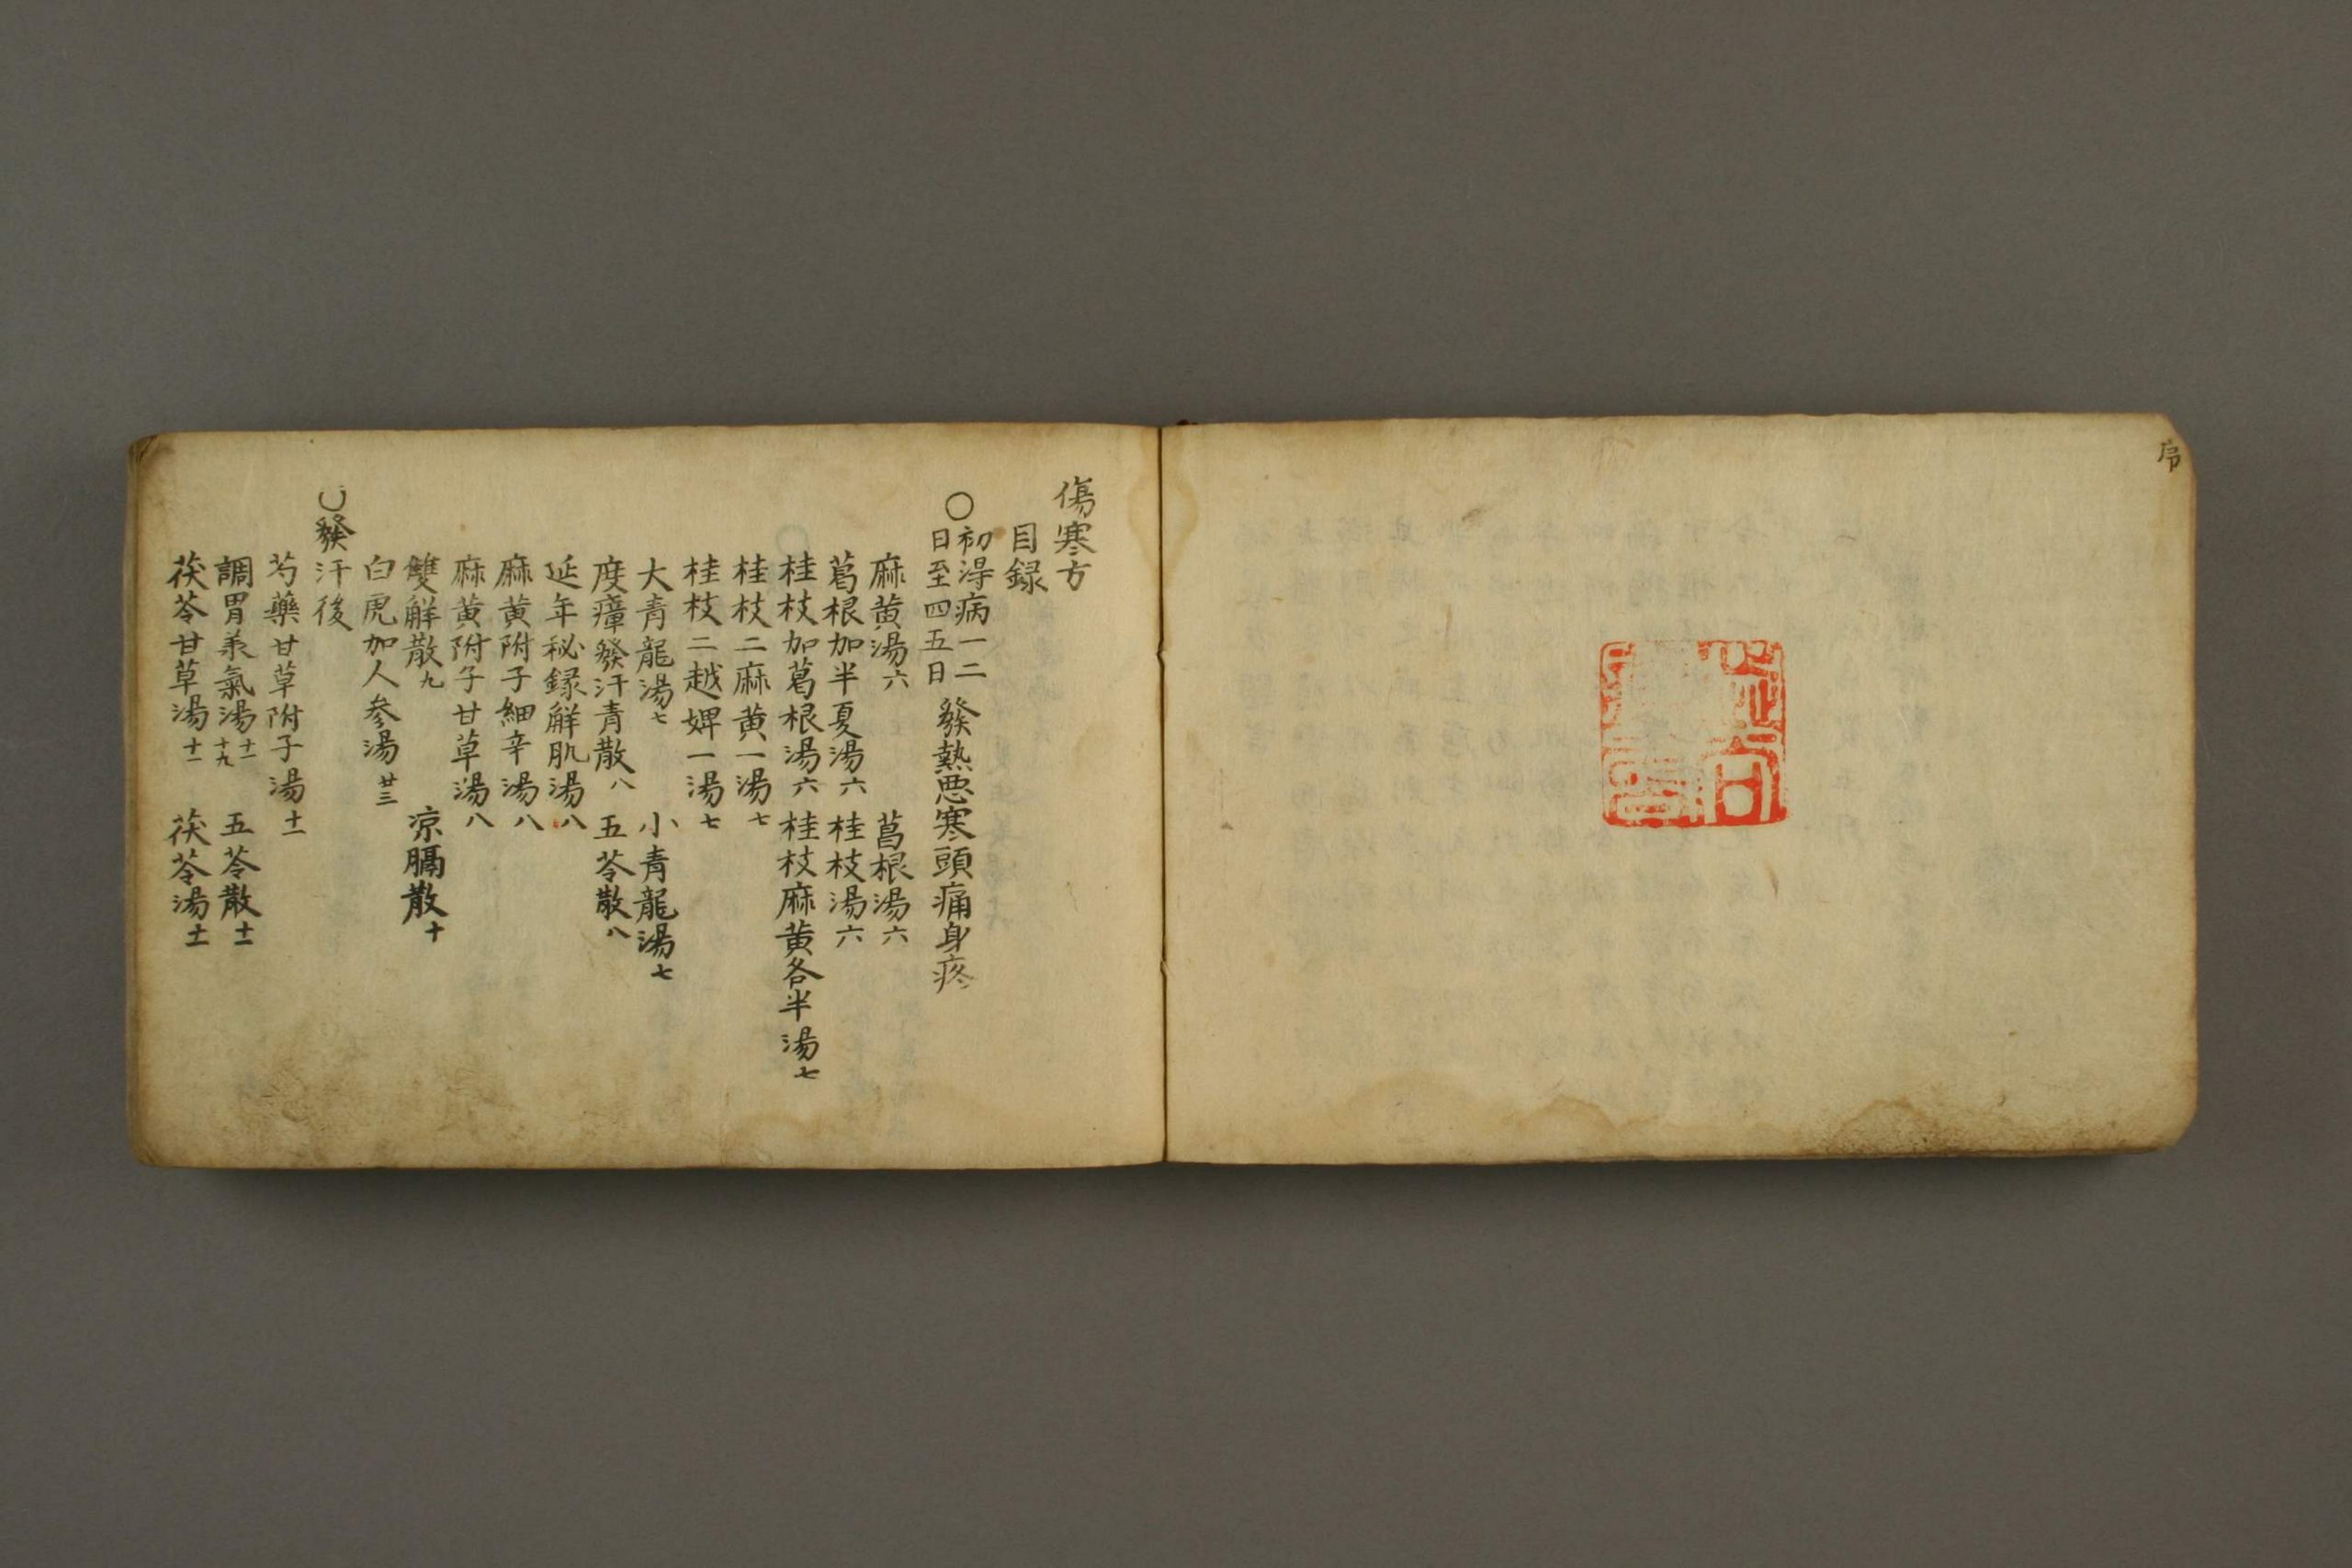 傷寒方
目録
○初淂病一二日至四五日 發熱悪寒頭痛身疼
麻黄湯六 葛根湯六
葛根加半夏湯六 桂枝湯六
桂枝加葛根湯六 桂枝麻黄各半湯七
桂枝二麻黄一湯七
桂枝二越婢一湯七
大青龍湯七 小青龍湯七
度瘴發汗青散八 五苓散八
延年秘録解肌湯八
麻黄附子細辛湯八
麻黄附子甘草湯八
雙解散九 凉膈散十
白虎加人参湯廿三
○發汗後
芍藥甘草附子湯十一
調胃承氣湯十一十九 五苓散十一
茯苓甘草湯十一 茯苓湯十一